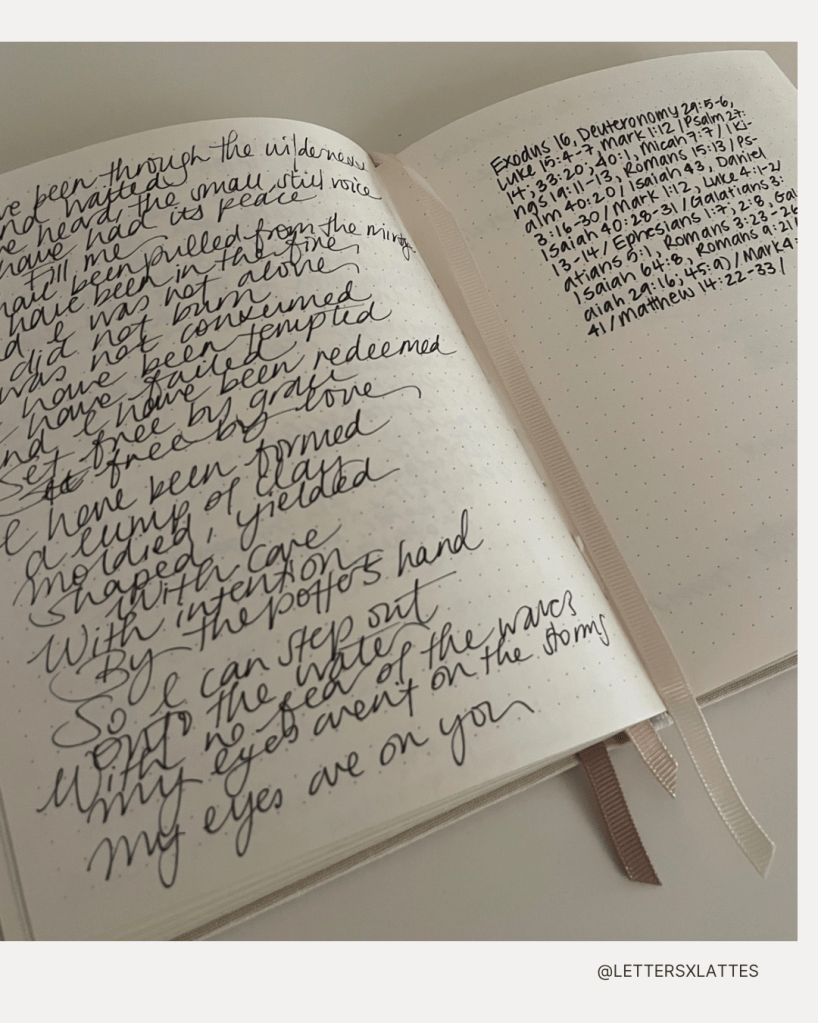 ve been through the wilderness
and waited
ve heard, the small, still voice
have had its peace
Fill me
have been pulled from the miry
have been in the fire,
d I was not alone,
did not burn
was not consumed
I have been tempted
I have failed
and I have been redeemed
Set free by grace
Set free by love
I have been formed
a lump of clay
molded, yielded
shaped
With care
With intention
By the potters hand
So I can step out
onto the water
With no fear of the waves
my eyes arent on the storms
my eyes are on you
Exodus 16, Deuteronomy 29:5-6,
Luke 15:4-7, Mark 1:12 / Psalm 27:
14, 33:20, 40:1, Micah 7:7 / 1Ki-
ngs 19:11-13, Romans 15:13 / Ps-
alm 40:20 / Isaiah 43, Daniel
3:16-30 / Mark 1:12, Luke 4:1-2/
Isaiah 40:28-31 / Galatians 3:
13-14 / Ephesians 1:7, 2:8, Gal
atians 5:1, Romans 3:23-26
Isaiah 64:8, Romans 9:21
aiah 29:16, 45:9) / Mark 4:
41 / Matthew 14:22-33 /
@LETTERSXLATTES